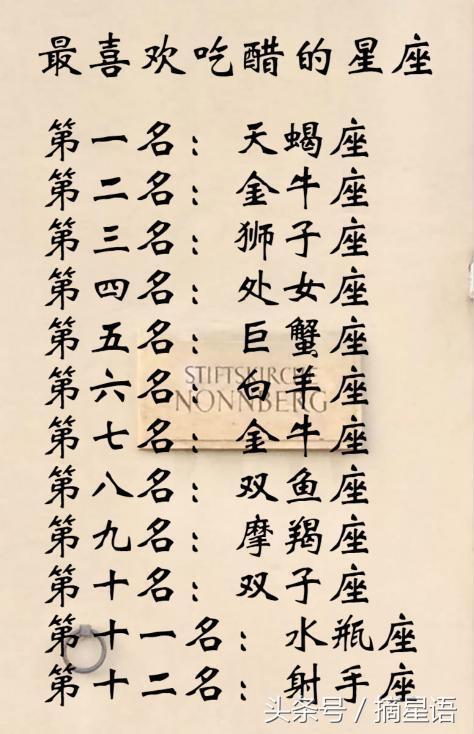 最喜欢吃醋的星座
第一名：天蝎座
第二名：金牛座
第三名：狮子座
第四名：处女座
第五名：巨蟹座
STIFTSKIRCHE
第六名：白羊座
NONNBERG
第七名：金牛座
第八名：双鱼座
第九名：摩羯座
第十名：双子座
第十一名：水瓶座
第十二名：射手座
头条号/摘星语